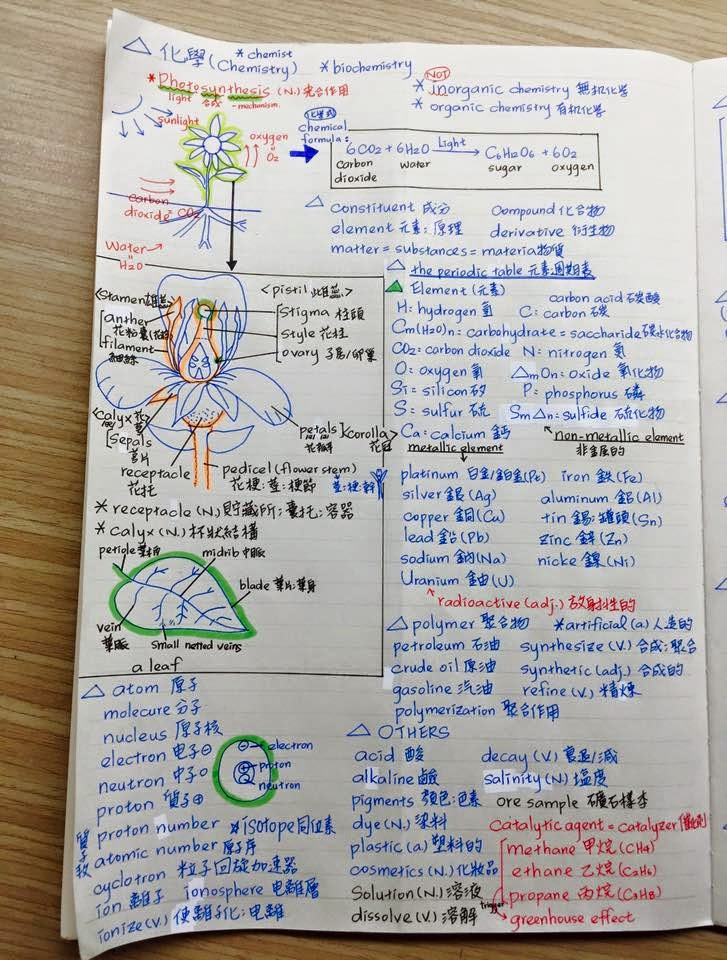 △ 化學 (Chemistry) * chemist * biochemistry
* Photosynthesis (N.) 光合作用
light 合成 -mechanism.
NOT
* inorganic chemistry 無机化学
* organic chemistry 有机化学
sunlight
oxygen
O₂
Carbon dioxide CO₂
Water →
H₂O
化學式
chemical formula:
6CO₂ + 6H₂O Light → C₆H₁₂O₆ + 6O₂
carbon dioxide water sugar oxygen
△ constituent 成分 compound 化合物
element 元素; 原理 derivative 衍生物
matter = substances = materia 物質
△ the periodic table 元素週期表
▲ Element (元素) carbon acid 碳酸
H: hydrogen 氫 C: carbon 碳
Cm(H₂O)n: carbohydrate = saccharide 碳水化合物
CO₂: carbon dioxide N: nitrogen 氮
O: oxygen 氧 △mOn: oxide 氧化物
Si: silicon 矽 P: phosphorus 磷
S: sulfur 硫 Sm△n: sulfide 硫化物
Ca: calcium 鈣 non-metallic element
metallic element 非金屬的
platinum 白金/鉑金 iron 鐵 (Fe)
silver 銀 (Ag) aluminum 鋁 (Al)
copper 銅 (Cu) tin 錫; 罐頭 (Sn)
lead 鉛 (Pb) zinc 鋅 (Zn)
sodium 鈉 (Na) nicke 鎳 (Ni)
Uranium 鈾 (U)
radioactive (adj.) 放射性的
<stamen 雄蕊>
anther
花粉囊
filament
細絲
<pistil 雌蕊>
Stigma 柱頭
style 花柱
ovary 子房/卵巢
<calyx 花萼>
Sepals
萼片
receptacle
花托
petals
花瓣
corolla
花冠
pedicel (flower stem)
花梗; 莖; 梗節 莖; 梗幹
* receptacle (N.) 貯藏所; 囊托; 容器
* calyx (N.) 杯狀結構
petiole 葉柄 midrib 中脈
blade 葉片; 葉身
vein
葉脈
Small netted veins
a leaf
△ polymer 聚合物 * artificial (a) 人造的
petroleum 石油 synthesize (V.) 合成; 聚合
crude oil 原油 synthetic (adj.) 合成的
gasoline 汽油 refine (V.) 精煉
polymerization 聚合作用
△ atom 原子
molecure 分子
nucleus 原子核
electron 电子 ⊖
neutron 中子 ○
proton 質子 ⊕
electron
proton
neutron
質子數
proton number * isotope 同位素
atomic number 原子序
cyclotron 粒子回旋加速器
ion 離子 ionosphere 电離層
ionize (V.) 使離子化; 电離
△ OTHERS
acid 酸 decay (V.) 衰退/減
alkaline 鹼 salinity (N.) 塩度
pigments 顏色; 色素 ore sample 礦石樣本
dye (N.) 染料 catalytic agent = catalyzer
plastic (a) 塑料的 methane 甲烷 (CH₄)
cosmetics (N.) 化妝品 ethane 乙烷 (C₂H₆)
Solution (N.) 溶液 propane 丙烷 (C₃H₈)
dissolve (V.) 溶解 trigger greenhouse effect